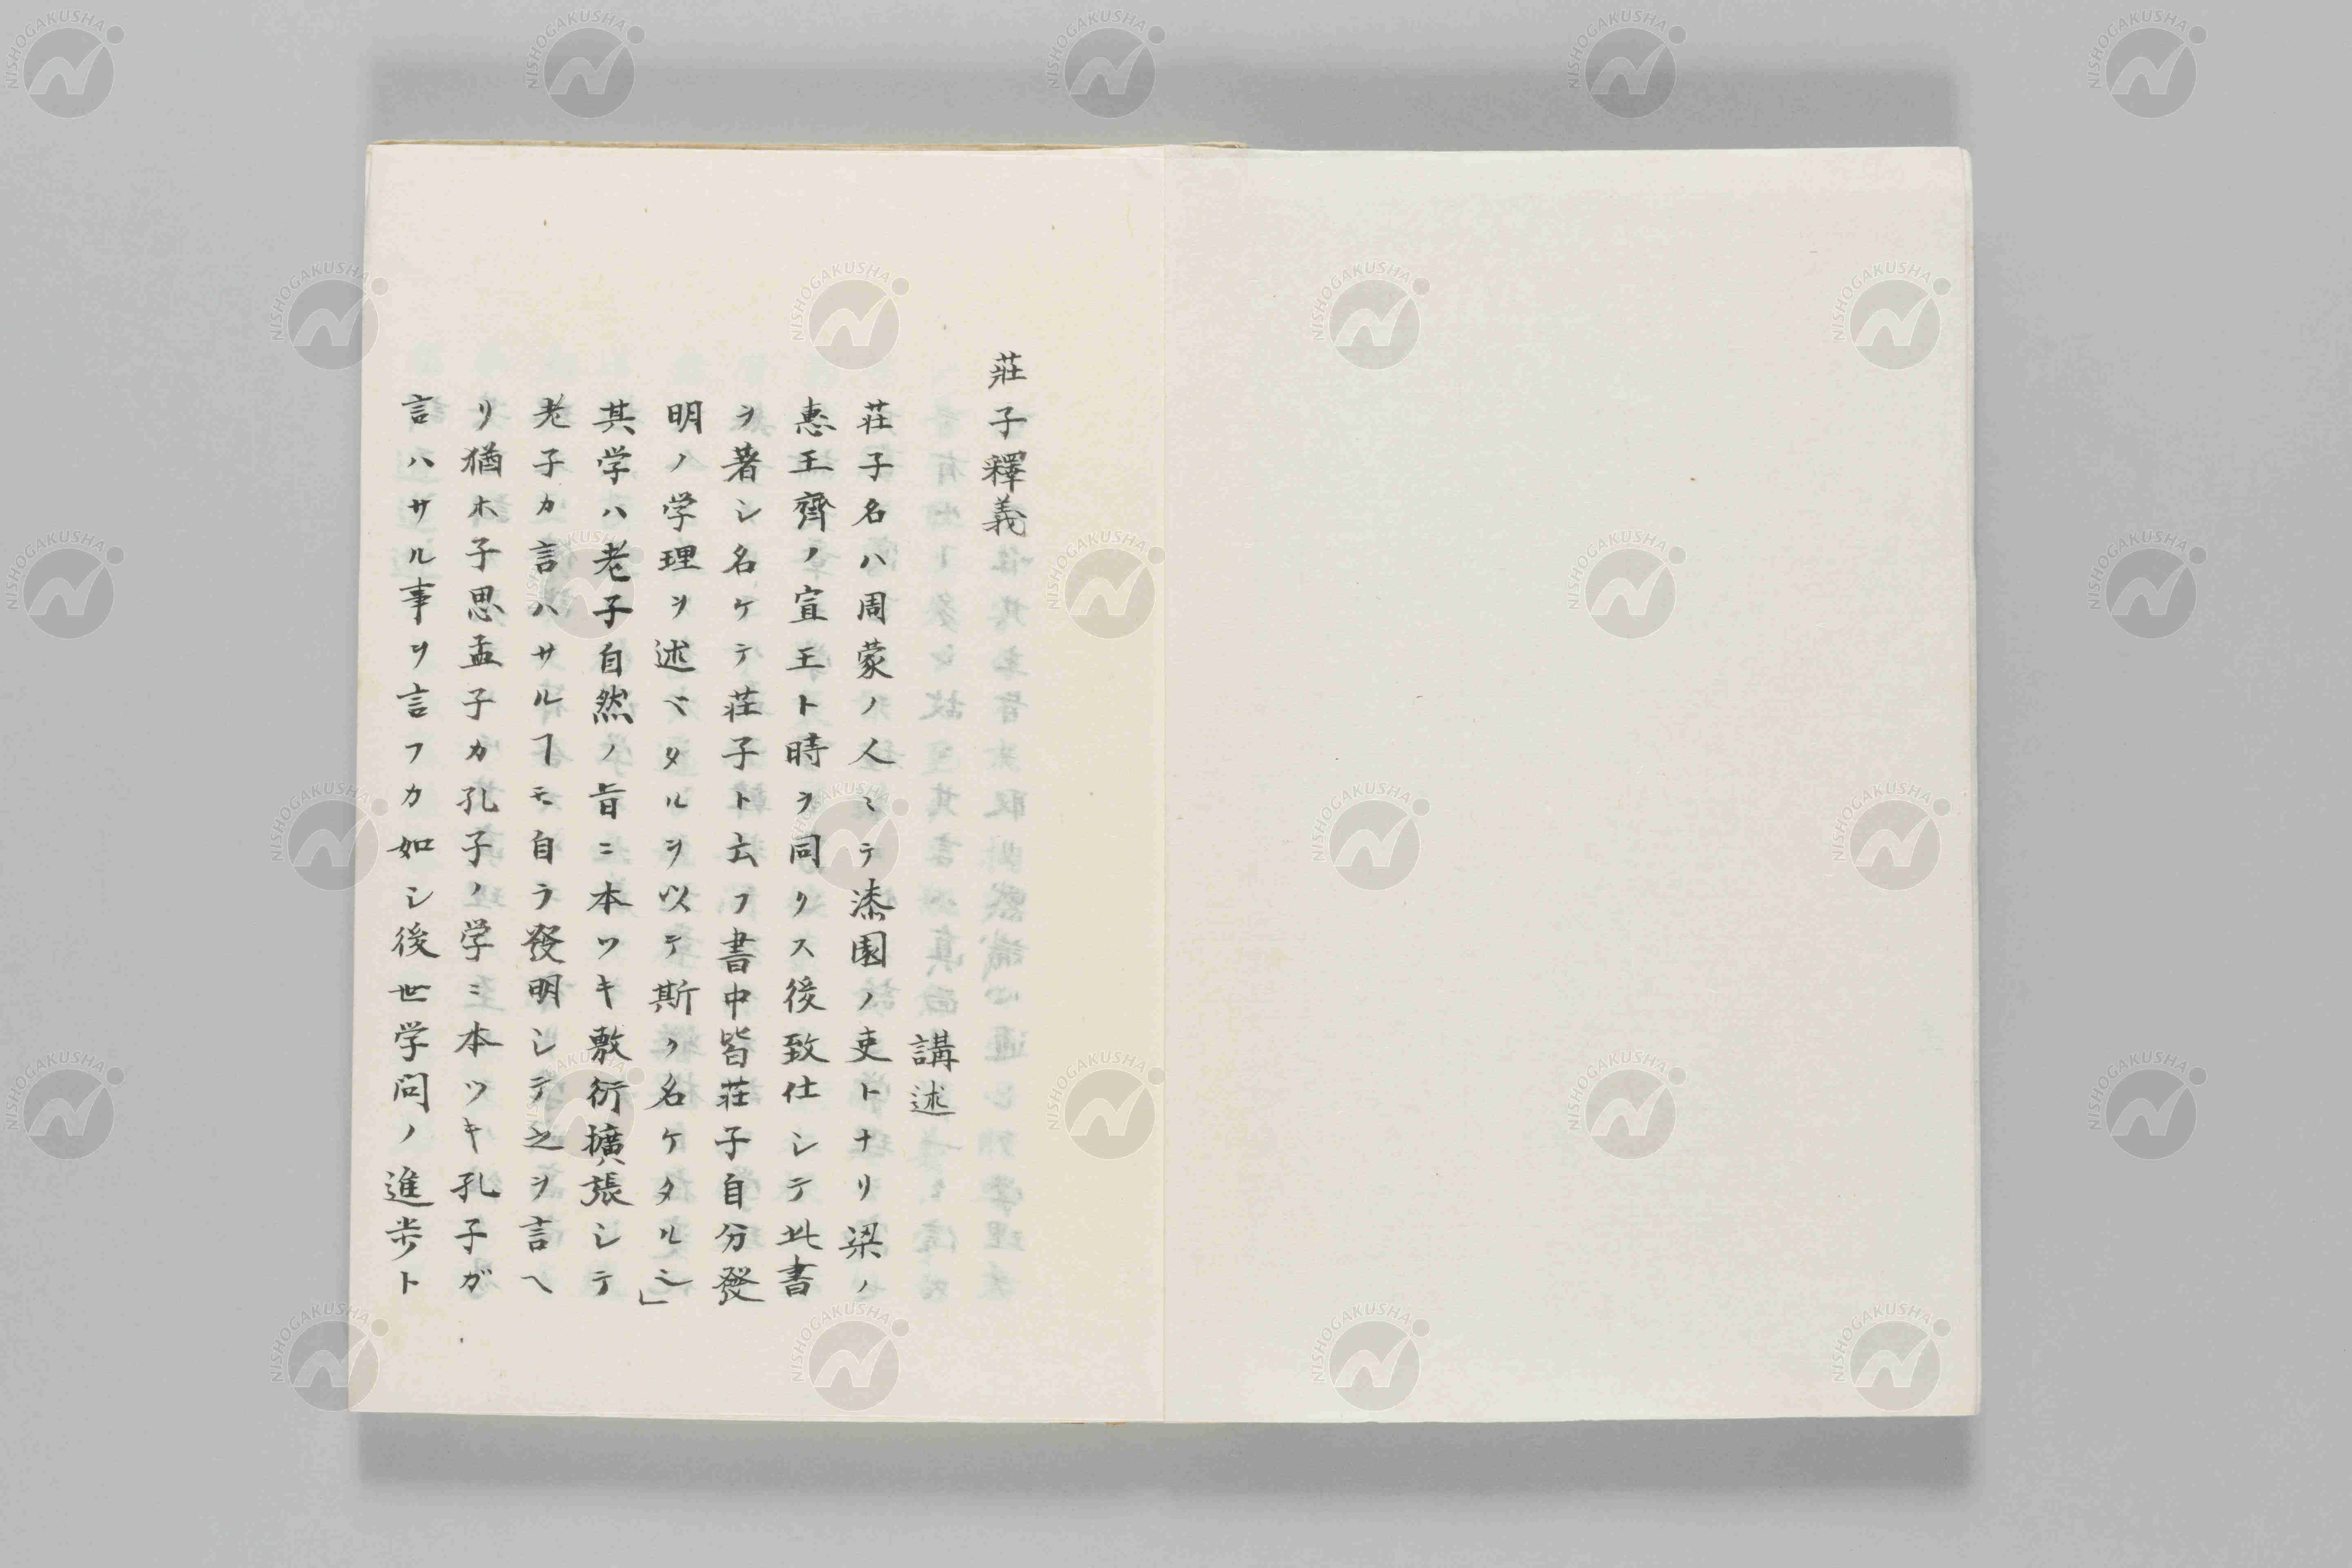 莊子釋義
講述
莊子名ハ周蒙ノ人ミテ漆園ノ吏トナリ梁ノ
惠王齊ノ宣王ト時ヲ同リス後致仕シテ此書
ヲ著シ名ケテ莊子ト云フ書中皆莊子自分發
明ノ学理ヲ述ベタルヲ以テ斯ク名ケタル」
其学ハ老子自然ノ旨ニ本ツキ敷衍擴張シテ
老子カ言ハサルヿモ自ラ發明シテ之ヲ言ヘ
リ猶ホ子思孟子カ孔子ノ学ミ本ツキ孔子ガ
言ハサル事ヲ言フカ如シ後世学问ノ進歩ト
NISHOGAKUSHA